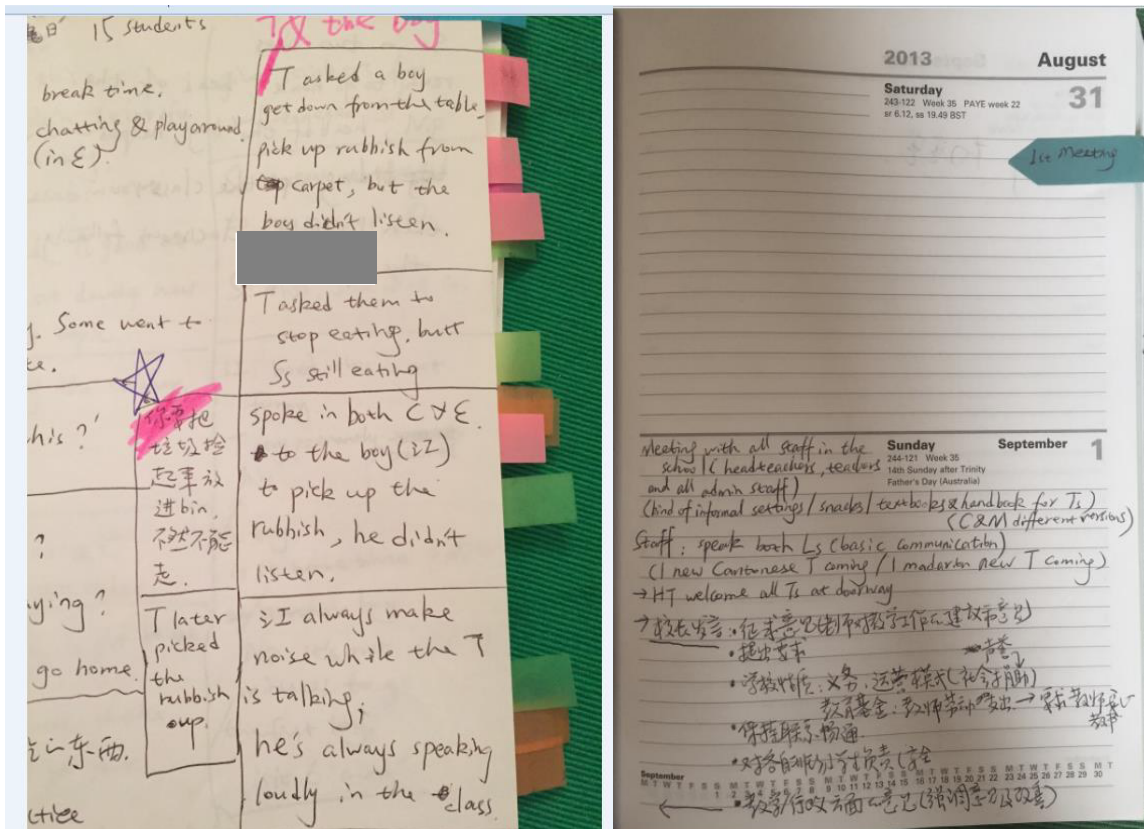 15 students
break time.
chatting & play around.
(in E).
T & the boy
T asked a boy
get down from the table,
pick up rubbish from
carpet, but the
boy didn't listen.
T asked them to
stop eating, butt
Ss still eating
Some went to
his?'
你要把
垃圾捡
起来放
进bin,
不然不能
走.
spoke in both C & E.
to the boy (江)
to pick up the
rubbish, he didn't
listen.
?
ying?
go home.
T later
picked
the
rubbish
up.
江 always make
noise while the T
is talking;
he's always speaking
loudly in the class
东西.
ctice
2013 August
Saturday 31
243-122 Week 35 PAYE week 22
sr 6.12, ss 19.49 BST
1st Meeting
Sunday September 1
244-121 Week 35
14th Sunday after Trinity
Father's Day (Australia)
Meeting with all staff in the
school (headteachers, teachers
and all admin staff)
(kind of informal settings / snacks / textbooks & handbook for Ts)
(C&M different versions)
Staff: speak both Ls (basic communication)
(1 new Cantonese T coming / 1 madarin new T coming)
→ HT welcome all Ts at doorway
→ 校长发言 · 征求意见
· 提出要求
· 学校性质: 义务; 运营模式
教育基金:
· 保持联系畅通
September
M T W T F S S M T W T F S S M T W T F S S M T W T F S S M T
1 2 3 4 5 6 7 8 9 10 11 12 13 14 15 16 17 18 19 20 21 22 23 24 25 26 27 28 29 30